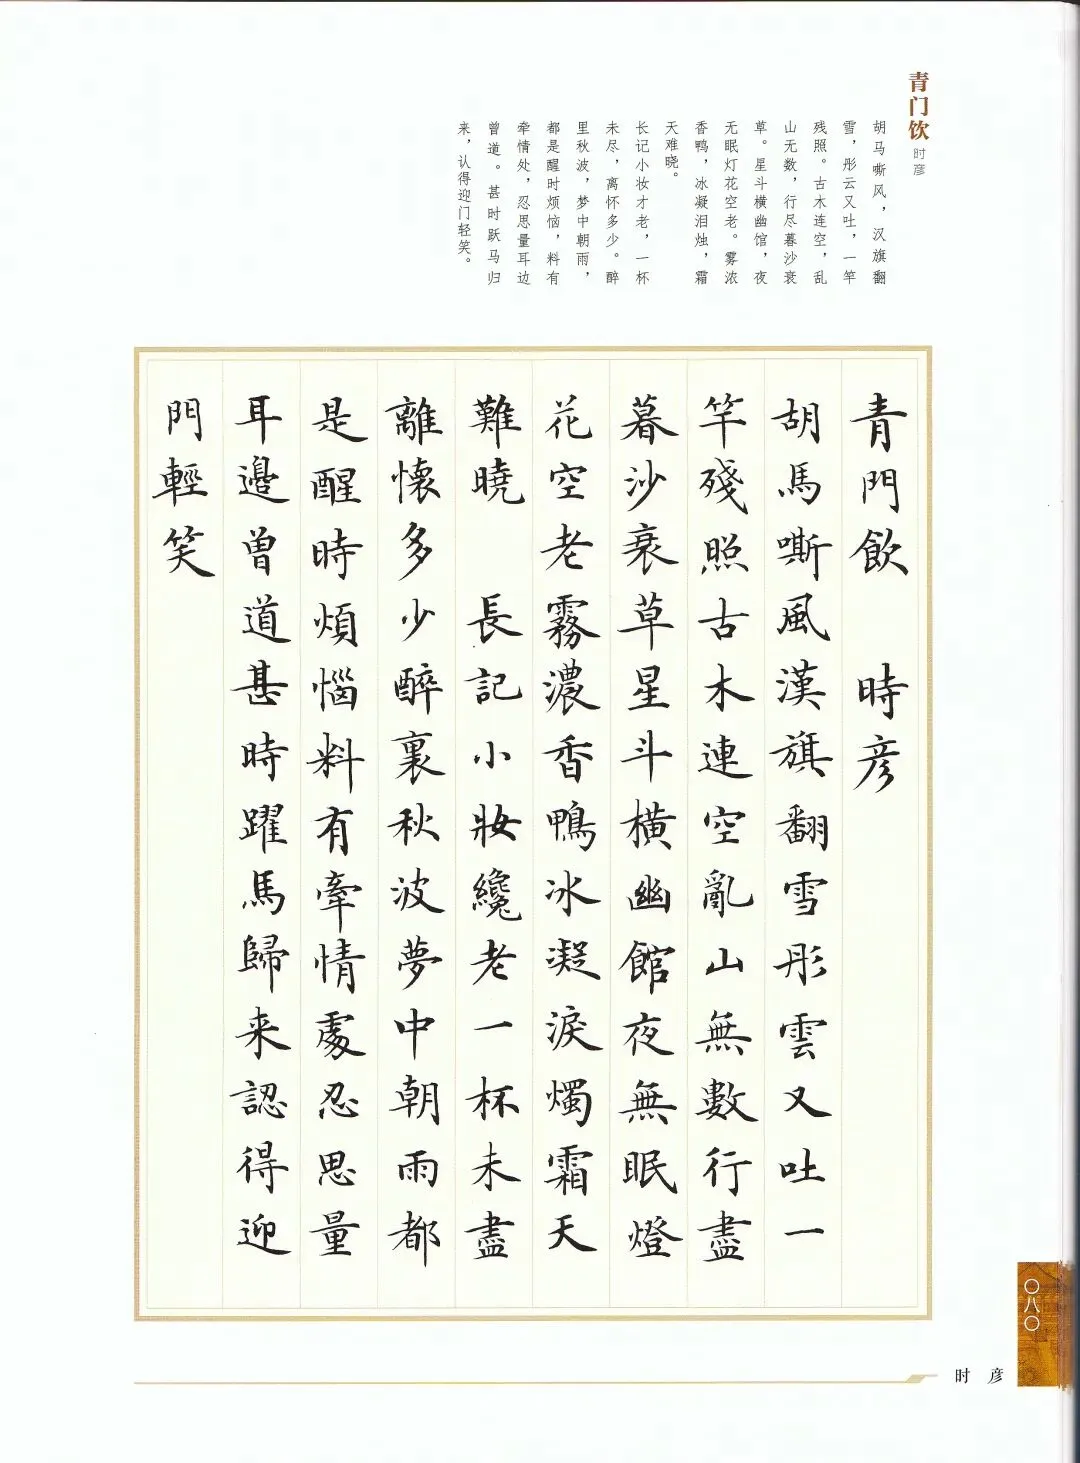 青门饮
时彦
胡马嘶风，汉旗翻
雪，彤云又吐，一竿
残照。古木连空，乱
山无数，行尽暮沙衰
草。星斗横幽馆，夜
无眠灯花空老。雾浓
香鸭，冰凝泪烛，霜
天难晓。
长记小妆才老，一杯
未尽，离怀多少。醉
里秋波，梦中朝雨，
都是醒时烦恼，料有
牵情处，忍思量耳边
曾道。甚时跃马归
来，认得迎门轻笑。
青門飲 時彦
胡馬嘶風漢旗翻雪彤雲又吐一
竿殘照古木連空亂山無數行盡
暮沙衰草星斗橫幽館夜無眠燈
花空老霧濃香鴨冰凝淚燭霜天
難曉 長記小妝纔老一杯未盡
離懷多少醉裏秋波夢中朝雨都
是醒時煩惱料有牽情處忍思量
耳邊曾道甚時躍馬歸来認得迎
門輕笑
〇八〇
时彦